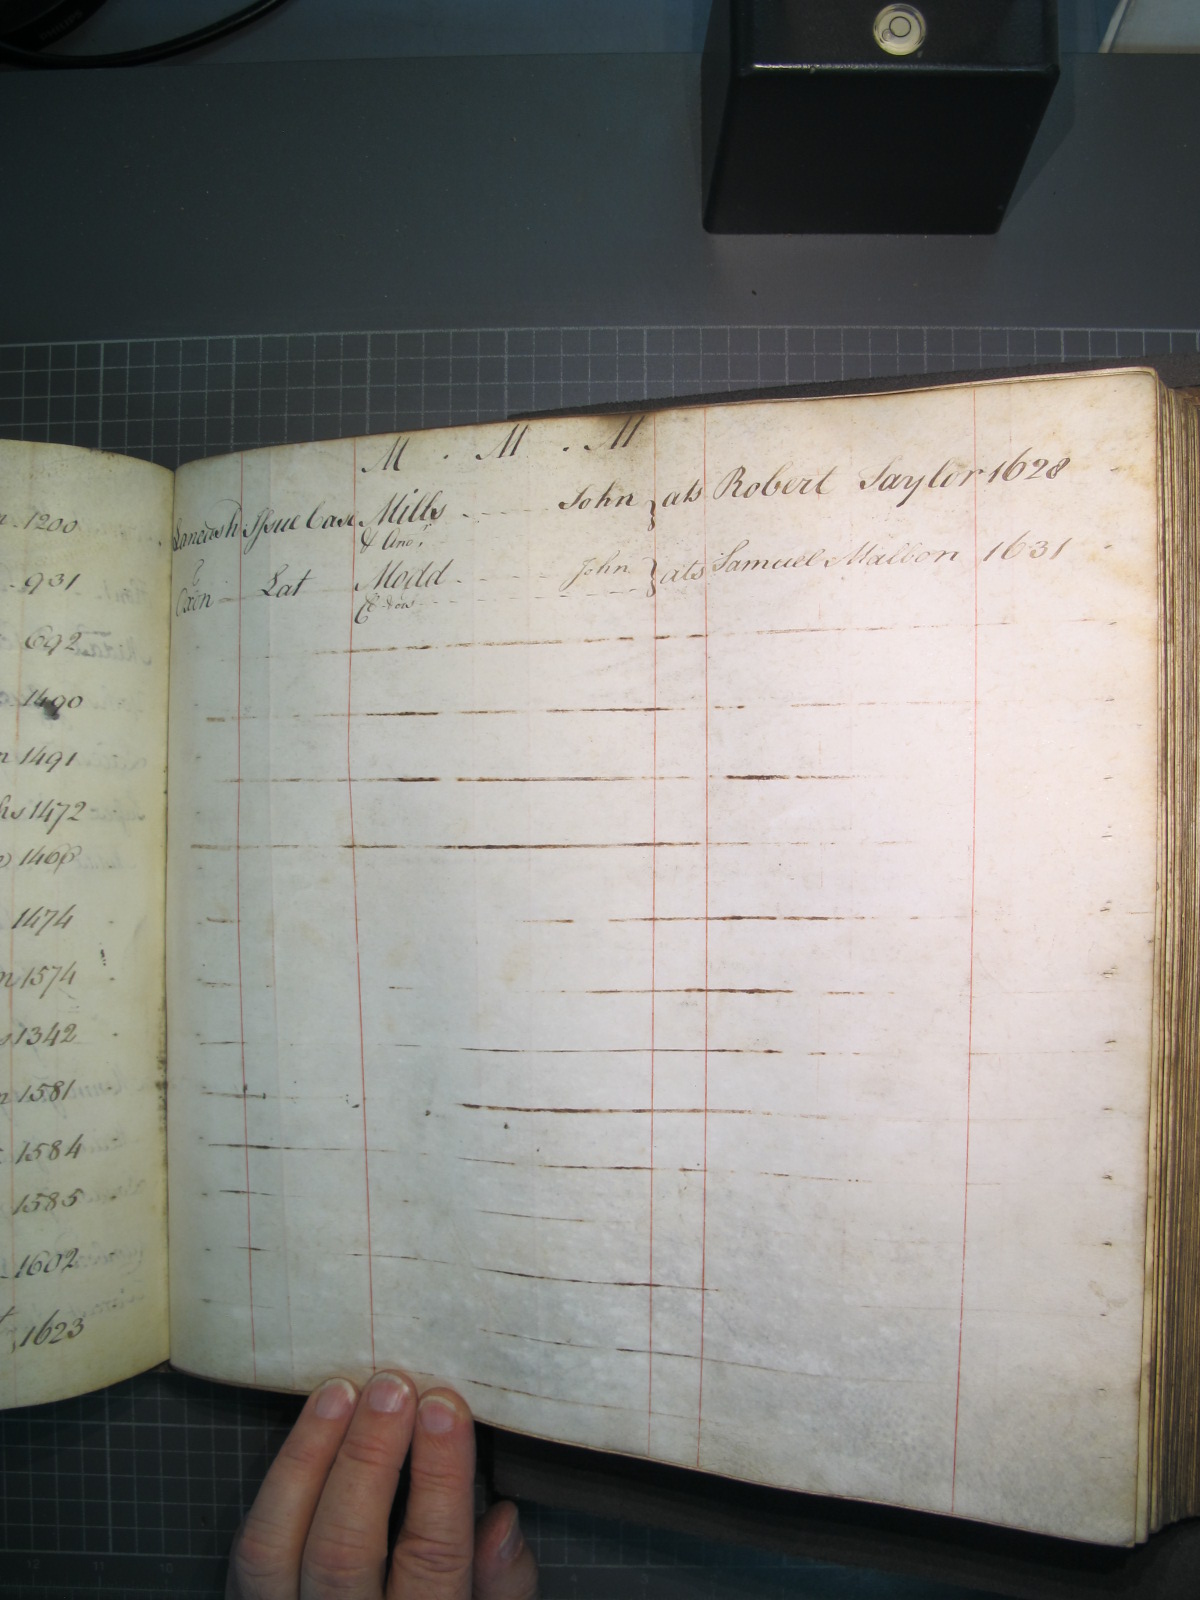 1200
931
692
1490
1491
1472
1468
1474
1574
1342
1581
1584
1585
1602
1623
M . M . M
Lancash Issue Case Mills John } ats Robert Taylor 1628
& Anor
Oxon Lat Modd John } ats Samuel Malbon 1631
12 11 10